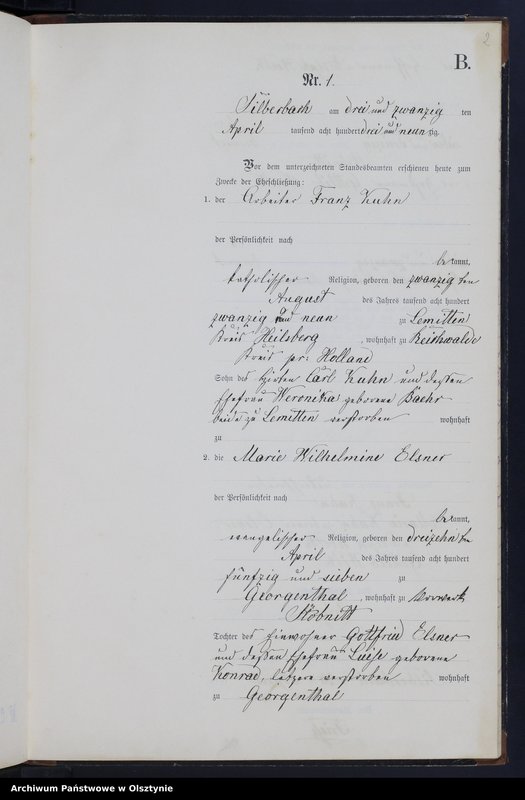 2
B.
Nr. 1.
Silberbach am drei und zwanzig ten
April tausend acht hundert drei und neun zig.
Vor dem unterzeichneten Standesbeamten erschienen heute zum
Zwecke der Eheschließung:
1. der Arbeiter Franz Kuhn
der Persönlichkeit nach
be kannt,
katholischer Religion, geboren den zwanzig ten
August des Jahres tausend acht hundert
zwanzig und neun zu Lemitten
Kreis Heilsberg, wohnhaft zu Reichwalde
Kreis pr: Holland
Sohn des Hirten Carl Kuhn und dessen
Ehefrau Weronika geborene Baehr
beide zu Lemitten verstorben wohnhaft
zu
2. die Marie Wilhelmine Elsner
der Persönlichkeit nach
be kannt,
evangelischer Religion, geboren den dreizehn ten
April des Jahres tausend acht hundert
fünfzig und sieben zu
Georgenthal, wohnhaft zu Vorwerk
Stobnitt
Tochter des Einwohner Gottfried Elsner
und dessen Ehefrau Luise geborene
Konrad, letzere verstorben wohnhaft
zu Georgenthal
Archiwum Państwowe w Olsztynie